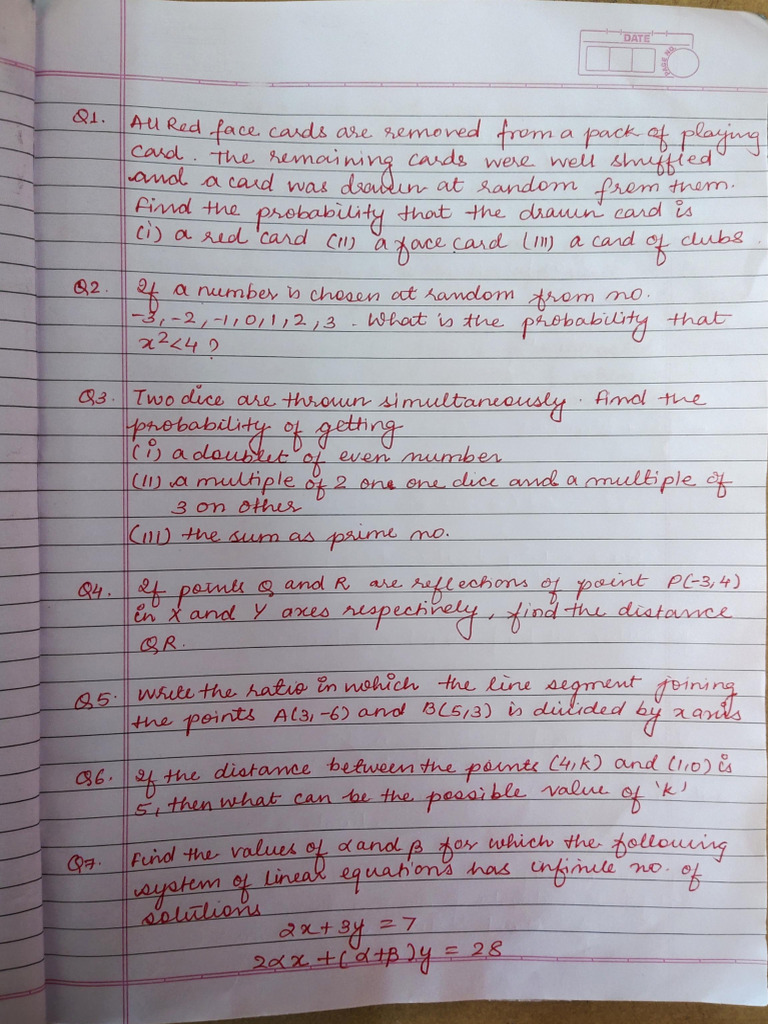 DATE
PAGE NO.
Q1. All Red face cards are removed from a pack of playing
card. The remaining cards were well shuffled
and a card was drawn at random from them.
Find the probability that the drawn card is
(i) a red card (II) a face card (III) a card of clubs.
Q2. If a number is chosen at random from no.
-3, -2, -1, 0, 1, 2, 3. What is the probability that
x²<4?
Q3. Two dice are thrown simultaneously. Find the
probability of getting
(i) a doublet of even number
(II) a multiple of 2 one one dice and a multiple of
3 on other
(III) the sum as prime no.
Q4. If points Q and R are reflections of point P(-3,4)
in X and Y axes respectively, find the distance
QR.
Q5. Write the ratio in which the line segment joining
the points A(3,-6) and B(5,3) is divided by x axis
Q6. If the distance between the points (4,K) and (1,0) is
5, then what can be the possible value of 'k'
Q7. Find the values of α and β for which the following
system of linear equations has infinite no. of
solutions
2x+3y=7
2αx+(α+β)y=28